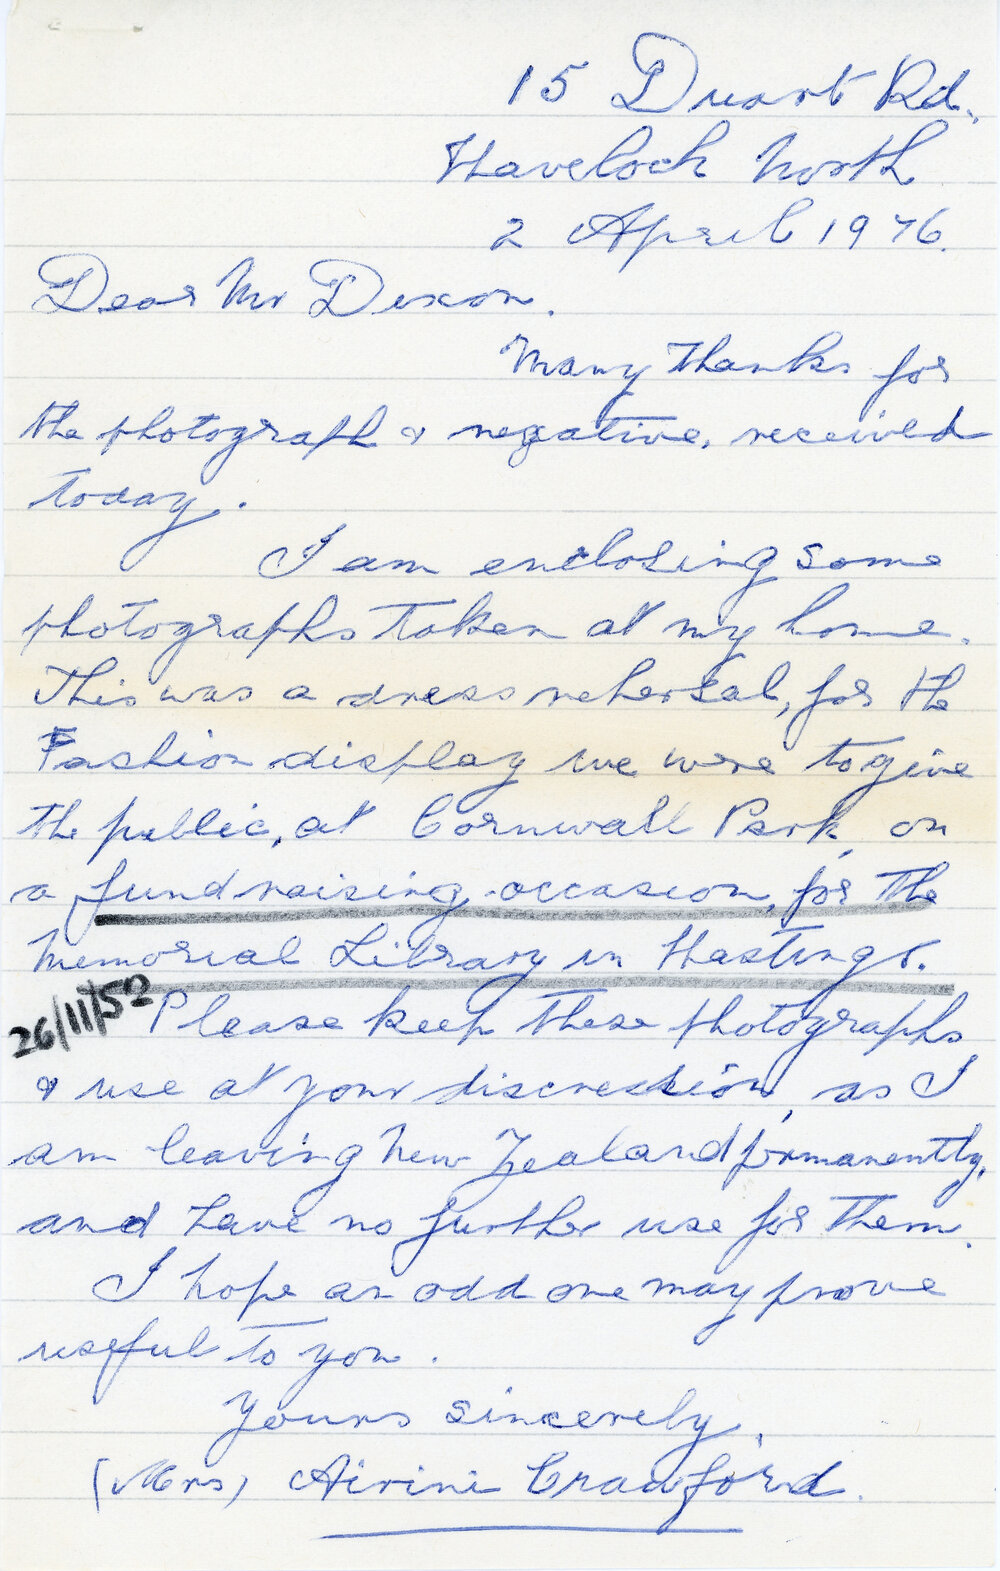 15 Duart Rd.,
Havelock North
2 April 1976.
Dear Mr Dixon.
Many thanks for
the photograph & negative, received
today.
I am enclosing some
photographs taken at my home.
This was a dress rehersal, for the
Fashion display we were to give
the public, at Cornwall Park, on
a fund raising occasion, for the
Memorial Library in Hastings.
26/11/52
Please keep these photographs
& use at your discresion, as I
am leaving New Zealand permanently,
and have no further use for them.
I hope an odd one may prove
useful to you.
Yours sincerely,
(Mrs) Airini Crawford.